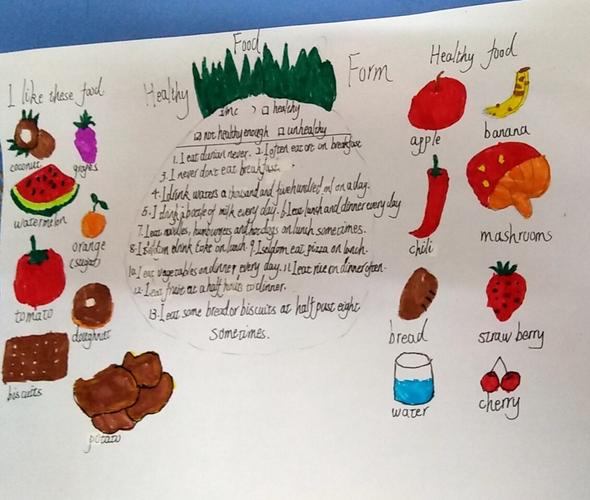 Food
Healthy Form
Healthy food
I like these food
coconut
grapes
watermelon
orange
tomato
doughnut
biscuits
potato
☐ healthy
☑ not healthy enough ☐ unhealthy
1. I eat durian never. 2. I often eat on breakfast
3. I never don't eat breakfast.
4. I drink waters a thousand and five hundred ml on a day.
5. I drink a bottle of milk every day. 6. I eat lunch and dinner every day
7. I eat noodles, humburgers and hot dogs on lunch sometimes.
8. I seldom drink on lunch. 9. I seldom eat pizza on lunch.
10. I eat vegetables on dinner every day. 11. I eat rice on dinner often.
12. I eat fruit at a half hours to dinner.
13. I eat some bread or biscuits at half past eight
sometimes.
apple
banana
chili
mashrooms
bread
strawberry
water
cherry